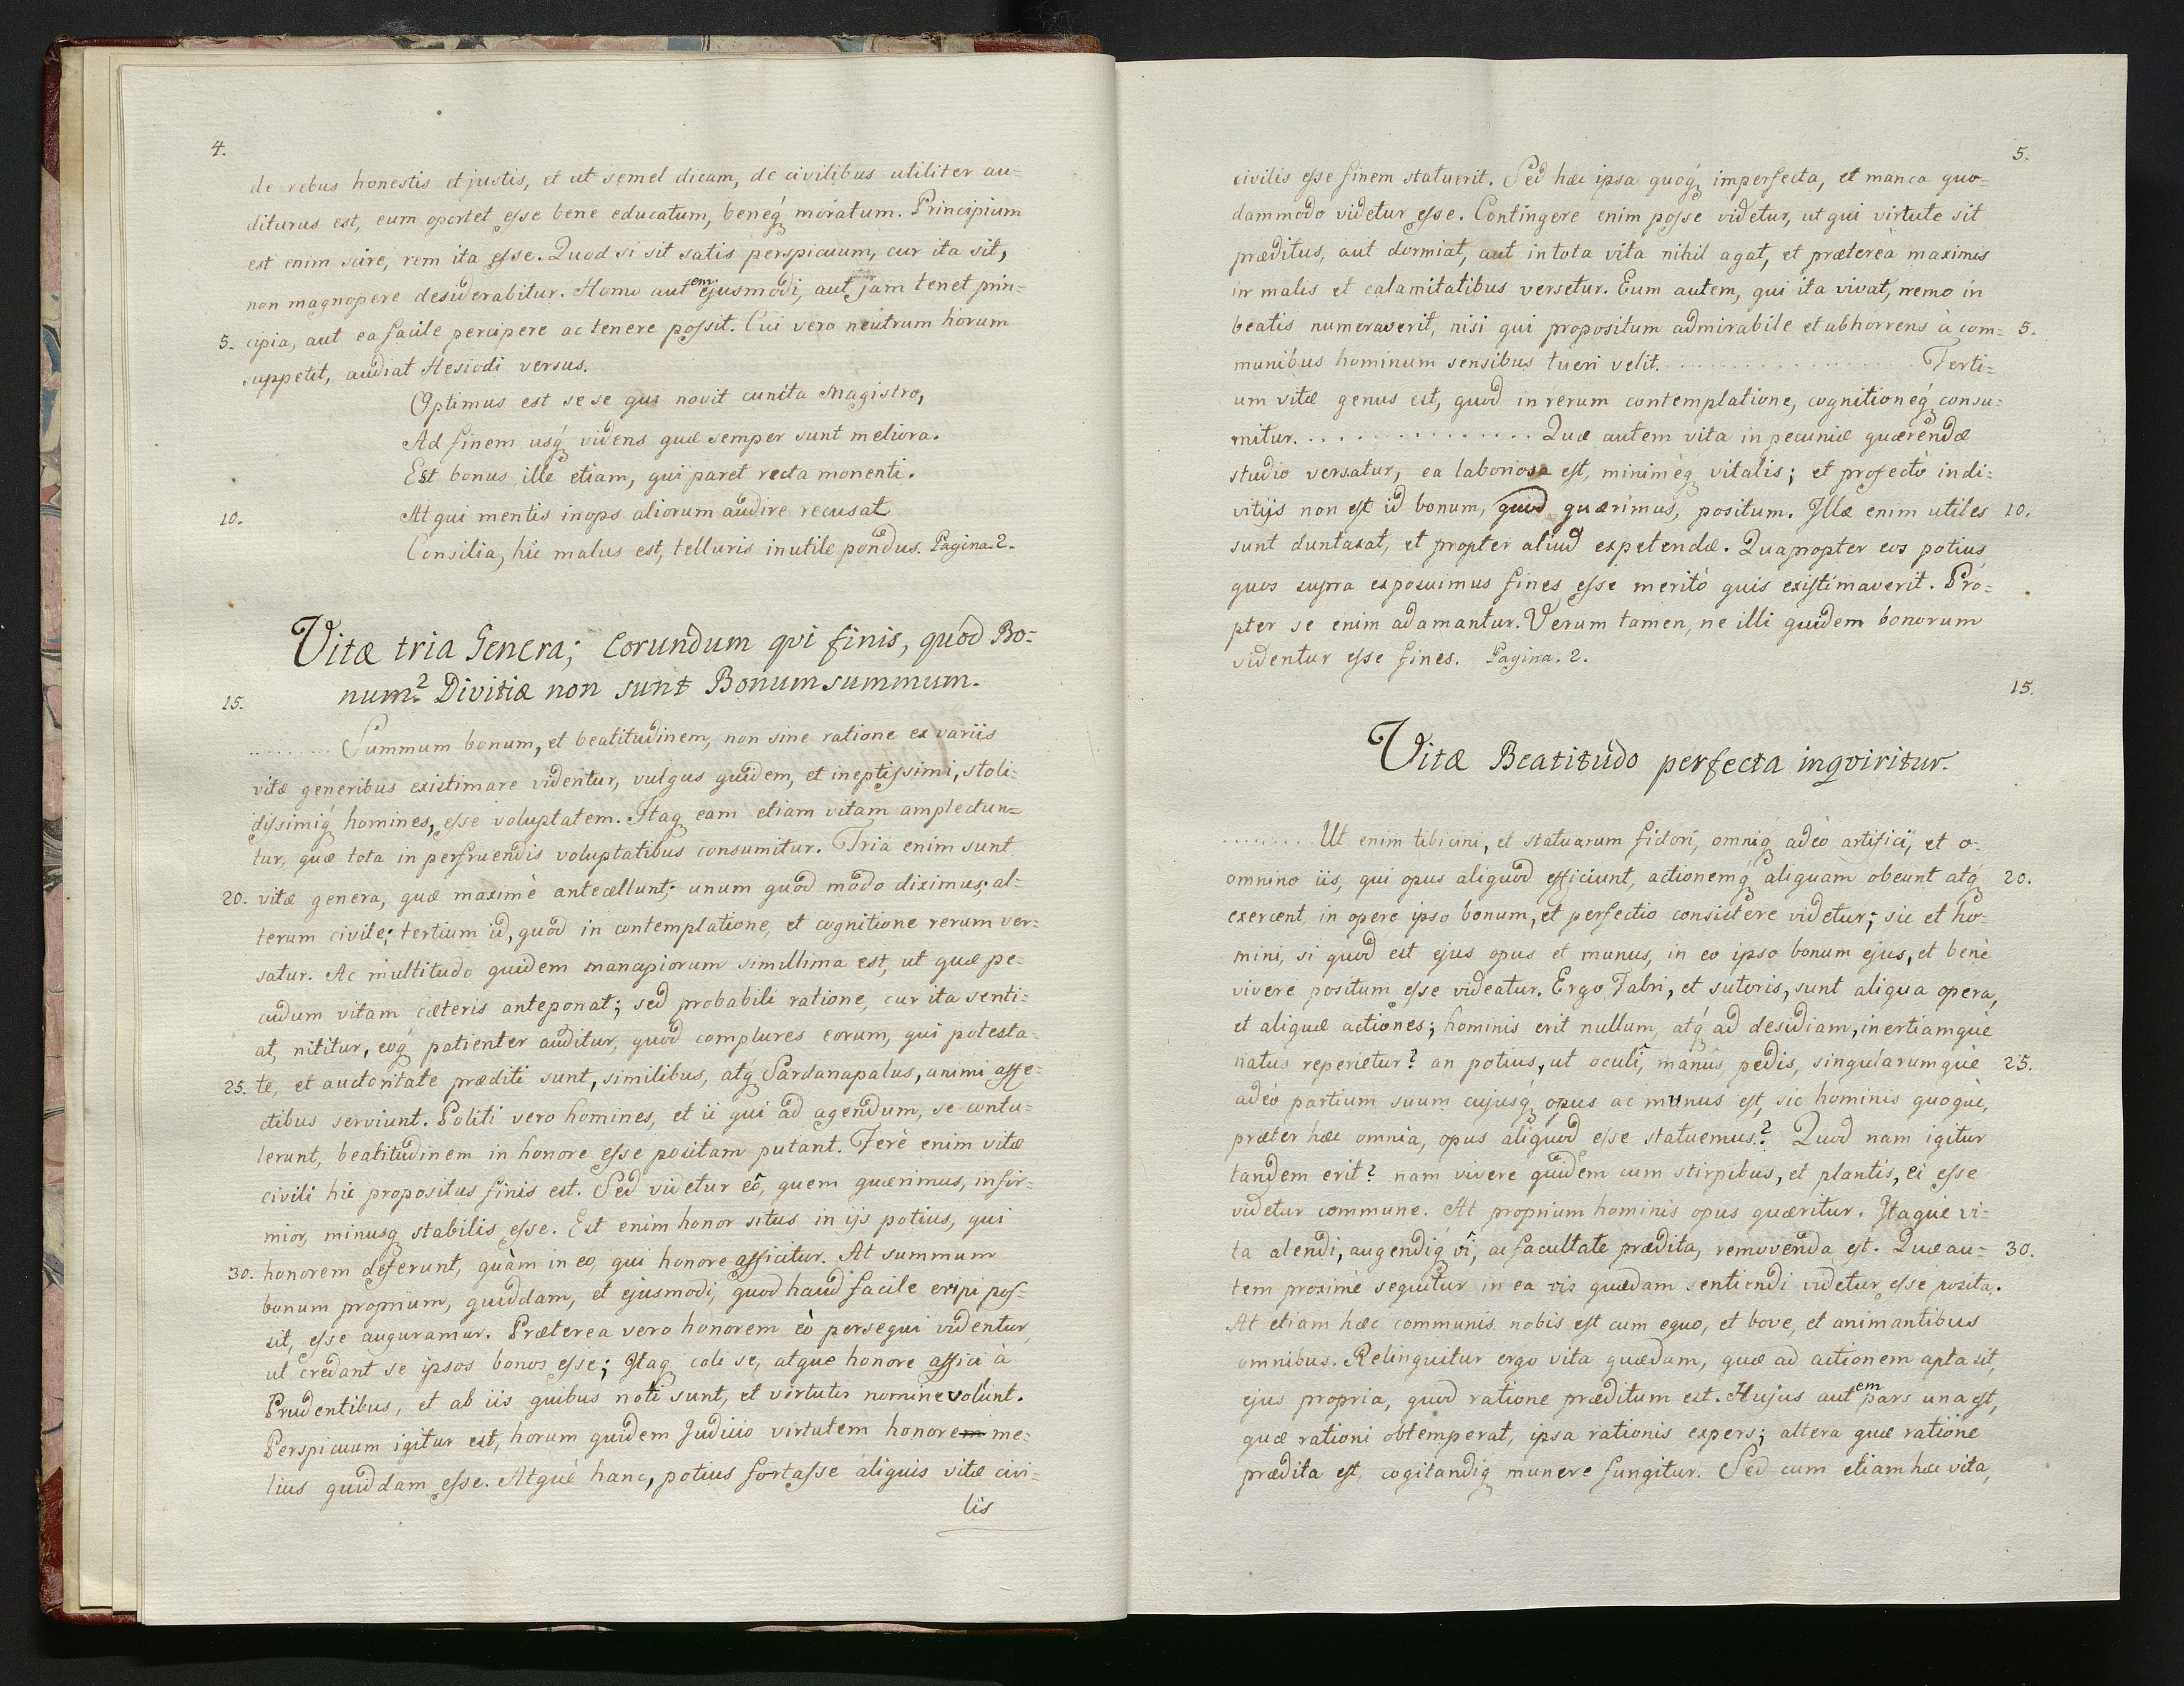 4.
de rebus honestis et justis, et ut semel dicam, de civilibus utiliter au=
diturus est, eum oportet esse bene educatum, beneq́ moratum. Principium
est enim scire, rem ita esse. Quod si sit satis perspicuum, cur ita sit,
non magnopere desiderabitur. Homo autem ejusmodi, aut jam tenet prin=
5. cipia, aut ea facile percipere ac tenere possit. Cui vero neutrum horum
suppetet, audiat Hesiodi versus.
Optimus est se se qui novit cuncta Magistro,
Ad finem usq́ videns quæ semper sunt meliora.
Est bonus ille etiam, qui paret recta monenti.
10. At qui mentis inops aliorum audire recusat
Consilia, hic malus est, telluris inutile pondus. Pagina. 2.
Vitæ tria Genera; Eorundum qvi finis, quod Bo=
15. num? Divitiæ non sunt Bonum summum.
......... Summum bonum, et beatitudinem, non sine ratione ex variis
vitæ generibus existimare videntur, vulgus quidem, et ineptissimi, stoli=
dissimiq́ homines, esse voluptatem. Itaq eam etiam vitam amplectun=
tur, quæ tota in perfruendis voluptatibus consumitur. Tria enim sunt
20. vitæ genera, quæ maximè antecellunt; unum quod modo diximus; al=
terum civile; tertium id, quod in contemplatione, et cognitione rerum ver=
satur. Ac multitudo quidem mancipiorum simillima est, ut quæ pe=
cudum vitam cæteris anteponat; sed probabili ratione, cur ita senti=
at, nititur, eoq́ patienter auditur, quod complures eorum, qui potesta=
25. te, et auctoritate præditi sunt, similibus, atq́ Sardanapalus, animi affe=
ctibus serviunt. Politi vero homines, et ii qui ad agendum, se contu=
lerunt, beatitudinem in honore esse positam putant. Ferè enim vitæ
civili hic propositus finis est. Sed videtur eô, quem quærimus, infir=
mior, minusq stabilis esse. Est enim honor situs in ijs potius, qui
30. honorem deferunt, quàm in eo, qui honore afficitur. At summum
bonum proprium, quiddam, et ejusmodi, quod haud facile eripi pos=
sit, esse auguramur. Præterea vero honorem eò persequi videntur,
ut credant se ipsos bonos esse; Itaq coli se, atque honore affici à
Prudentibus, et ab iis quibus noti sunt, et virtutis nomine volunt.
Perspicuum igitur est, horum quidem Judicio virtutem honorem me=
lius quiddam esse. Atquè hanc, potius fortasse aliquis vitæ civi=
lis
5.
civilis esse finem statuerit. Sed hæc ipsa quoq́ imperfecta, et manca quo=
dammodo videtur esse. Contingere enim posse videtur, ut qui virtute sit
præditus, aut dormiat, aut in tota vita nihil agat, et præterea maximis
in malis et calamitatibus versetur. Eum autem, qui ita vivat, nemo in
beatis numeraverit, nisi qui propositum admirabile et abhorrens à com= 5.
munibus hominum sensibus tueri velit. .................... Terti=
um vitæ genus est, quod in rerum contemplatione, cognitioneq́ consu=
mitur. ................ Quæ autem vita in pecuniæ quærendæ
studio versatur, ea laboriosa est, minimèq vitalis; et profectò in di=
vitijs non est id bonum, quod quærimus, positum. Illæ enim utiles 10.
sunt duntaxat, et propter aliud expetendæ. Quapropter eos potius
quos supra exposuimus fines esse meritò quis existimaverit. Pro=
pter se enim adamantur. Verum tamen, ne illi quidem bonorum
videntur esse fines. Pagina. 2.
15.
Vitæ Beatitudo perfecta inqviritur.
......... Ut enim tibicini, et statuarum fictori, omniq́ adeò artifici, et o=
omnino iis, qui opus aliquod efficiunt, actionemq́ aliquam obeunt atq́ 20.
exercent, in opere ipso bonum, et perfectio consistere videtur; sic et ho=
mini, si quod est ejus opus et munus, in eo ipso bonum ejus, et benè
vivere positum esse videatur. Ergo Fabri, et sutoris, sunt aliqua opera,
et aliquæ actiones; hominis erit nullum, atq́ ad desidiam, inertiamquè
natus reperietur? an potius, ut oculi, manûs, pedis, singularumquè 25.
adeò partium suum cujusq́ opus ac munus est, sic hominis quoquè,
præter hæc omnia, opus aliquod esse statuemus? Quod nam igitur
tandem erit? nam vivere quidem cum stirpibus, et plantis, ei esse
videtur commune. At proprium hominis opus quæritur. Itaque vi=
ta alendi, augendiq́ vî, ac facultate prædita, removenda est. Quæ au= 30.
tem proximè sequitur in ea vis quædam sentiendi videtur esse posita.
At etiam hæc communis nobis est cum equo, et bove, et animantibus
omnibus. Relinquitur ergo vita quædam, quæ ad actionem apta sit,
ejus propria, quod ratione præditum est. Hujus autem pars una est,
quæ rationi obtemperat, ipsa rationis expers; altera quæ ratione
prædita est, cogitandiq munere fungitur. Sed cum etiam hæc vita,